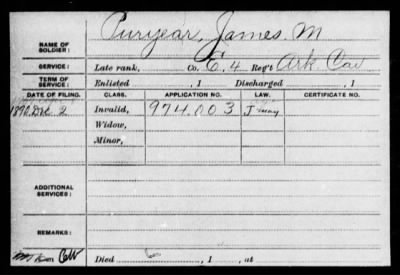 NAME OF SOLDIER: Puryear, James M
SERVICE: Late rank, Co. E. 4 Reg't Ark. Cav
TERM OF SERVICE: Enlisted , 1 Discharged , 1
DATE OF FILING. CLASS. APPLICATION NO. LAW. CERTIFICATE NO.
1890 Dec 2 Invalid, 974.003 J
Widow,
Minor,
ADDITIONAL SERVICES:
REMARKS:
Died , 1 , at